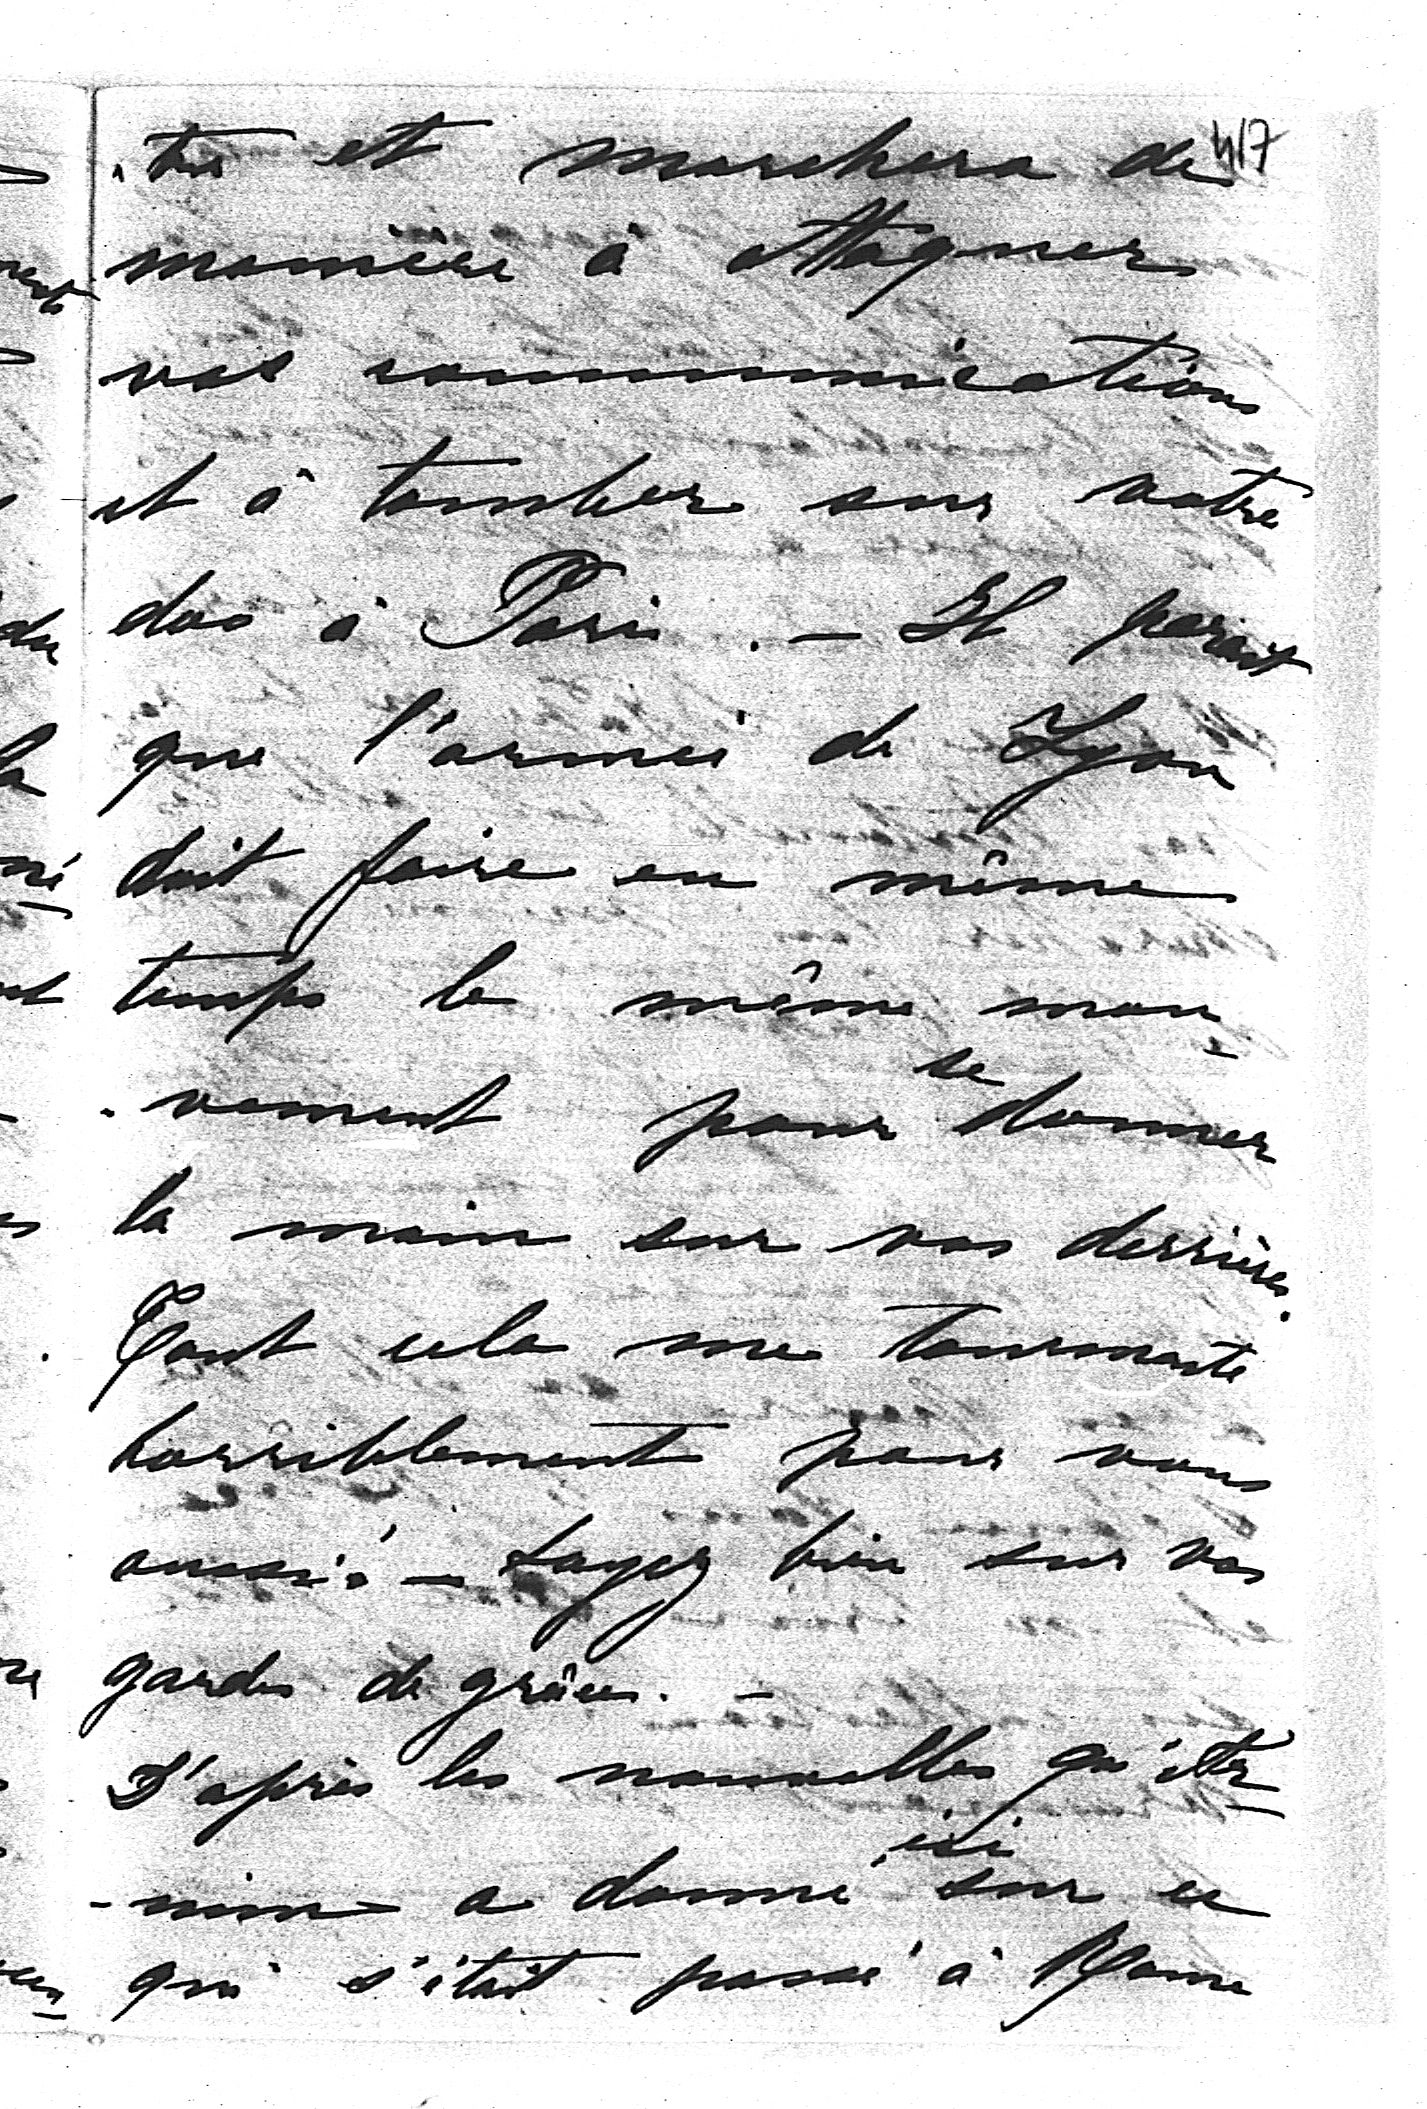 417
-tre et marchera de
manière à attaquer
vos communications
et à tomber sur votre
dos à Paris. — Il parait
que l'armée de Lyon
doit faire en même
temps le même mou-
-vement pour se donner
la main sur vos derrières.
Tout cela me tourmente
horriblement pour vous
aussi! — Soyez bien sur vos
gardes de grâce. —
D'après les nouvelles qu'
-nine a donné ici sur ce
qui s'était passé à Rome